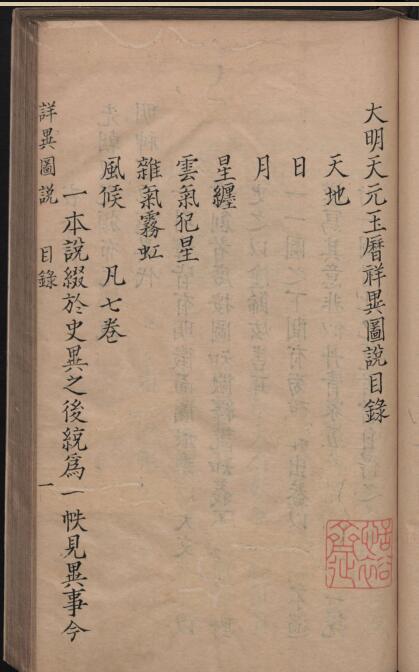 大明天元玉曆祥異圖說目錄
天地
日
月
星纏
雲氣犯星
雜氣霧虹
風候 凡七卷
一本說綴於史異之後統爲一帙見異事今
詳異圖說 目錄 一